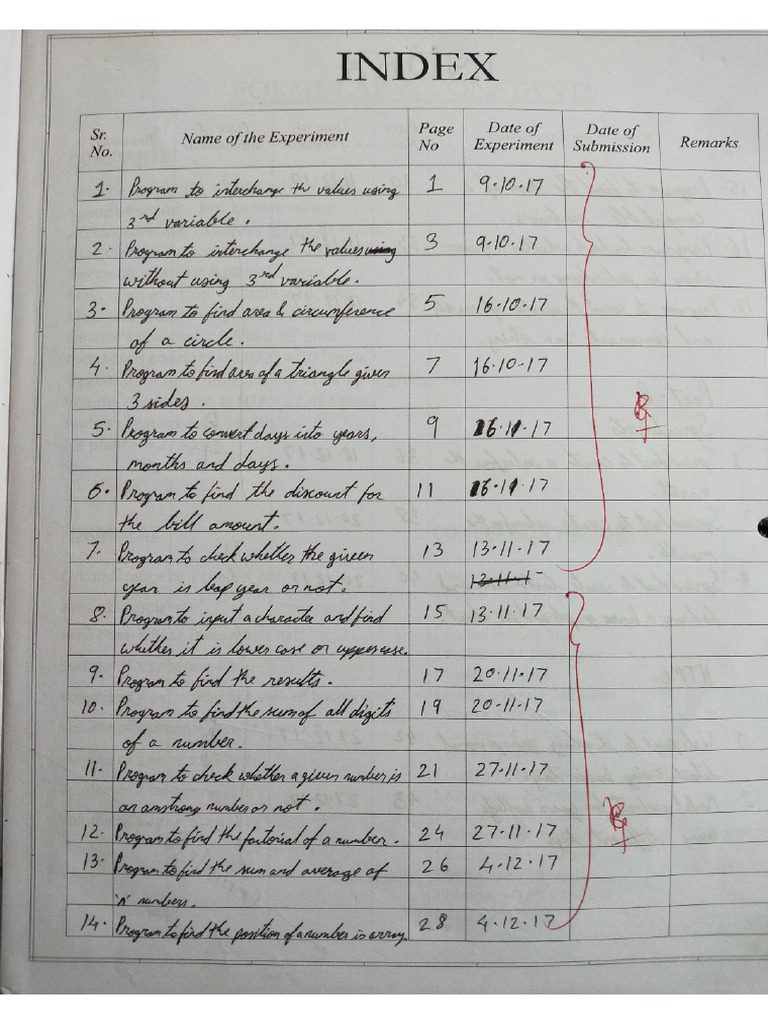 INDEX
Sr. No. Name of the Experiment Page No Date of Experiment Date of Submission Remarks
1. Program to interchange the values using 1 9.10.17
3rd variable.
2. Program to interchange the values 3 9.10.17
without using 3rd variable.
3. Program to find area & circumference 5 16.10.17
of a circle.
4. Program to find area of a triangle given 7 16.10.17
3 sides.
5. Program to convert days into years, 9 16.11.17
months and days.
6. Program to find the discount for 11 16.11.17
the bill amount.
7. Program to check whether the given 13 13.11.17
year is leap year or not.
8. Program to input a character and find 15 13.11.17
whether it is lower case or uppercase.
9. Program to find the results. 17 20.11.17
10. Program to find the sum of all digits 19 20-11-17
of a number.
11. Program to check whether a given number is 21 27.11.17
an amstrong number or not.
12. Program to find the factorial of a number. 24 27.11.17
13. Program to find the sum and average of 26 4.12.17
'n' numbers.
14. Program to find the position of a number is array. 28 4.12.17